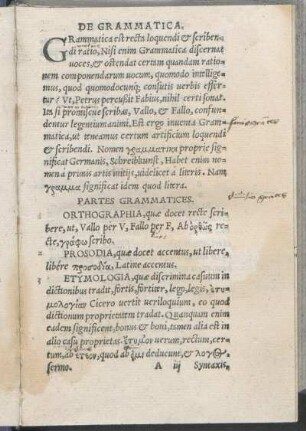 DE GRAMMATICA.
GRammatica est recte loquendi & scriben-
di ratio, Nisi enim Grammatica discernat
uoces, & ostendat certam quandam ratio-
nem componendarum uocum, quomodo intellige-
mus, quod quomodocunq; consutis uerbis effer-
tur? Vt, Petrus percussit Fabius, nihil certi sonat.
Itē si promiscue scribas, Vallo, & Fallo, confun-
dentur legentium animi. Est ergo inuenta Gram-
matica, ut teneamus certum artificium loquendi
& scribendi. Nomen γραμματικὴ proprie sig-
nificat Germanis, Schreibkunst, Habet enim no-
men a primis artis initijs, uidelicet a literis. Nam
γράμμα significat idem quod litera.
PARTES GRAMMATICES.
ORTHOGRAPHIA, quæ docet recte scri-
bere, ut, Vallo per V, Fallo per F, Ab ὀρθῶς re-
cte, γράφω scribo.
PROSODIA, quæ docet accentus, ut libere,
libére προσῳδία, Latine accentus.
ETYMOLOGIA, quæ discrimina casuum in
dictionibus tradit, fortis, fortiter, lego, legis, ἐτυ-
μολογίαν Cicero uertit ueriloquium, eo quod
dictionum proprietatem tradat. Quanquam enim
eadem significent, bonus & boni, tamen alia est in
alio casu proprietas. ἔτυμον uerum, rectum, cer-
tum, ab ἔτεον, quod ab deducunt, & λόγος
sermo.
A iij Syntaxis,